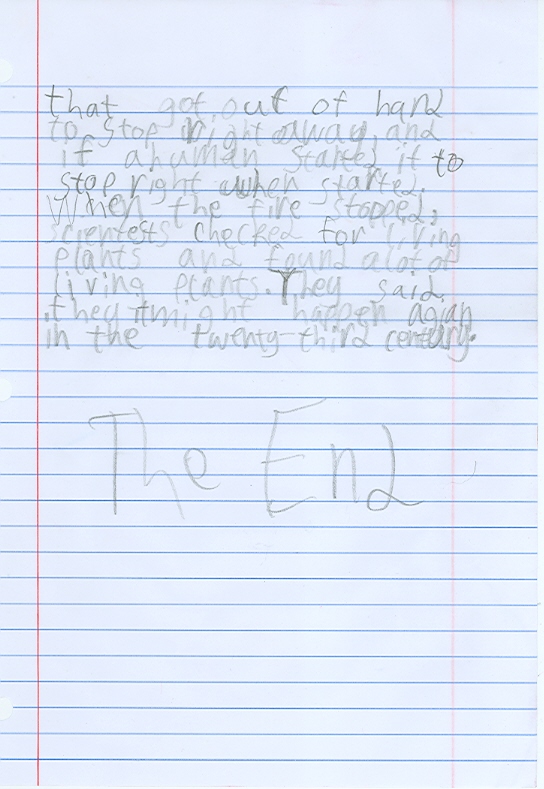 that got out of hand
to stop right away, and
if a human started it to
stop right when started.
When the fire stopped,
scientests checked for living
plants and found alot of
living plants. They said,
they might happen agian
in the twenty-third century.
The End